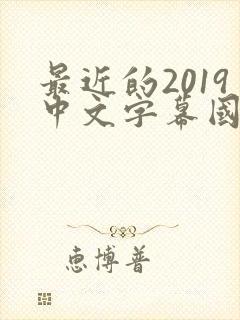 最近的2019
中文字幕國
恵博普